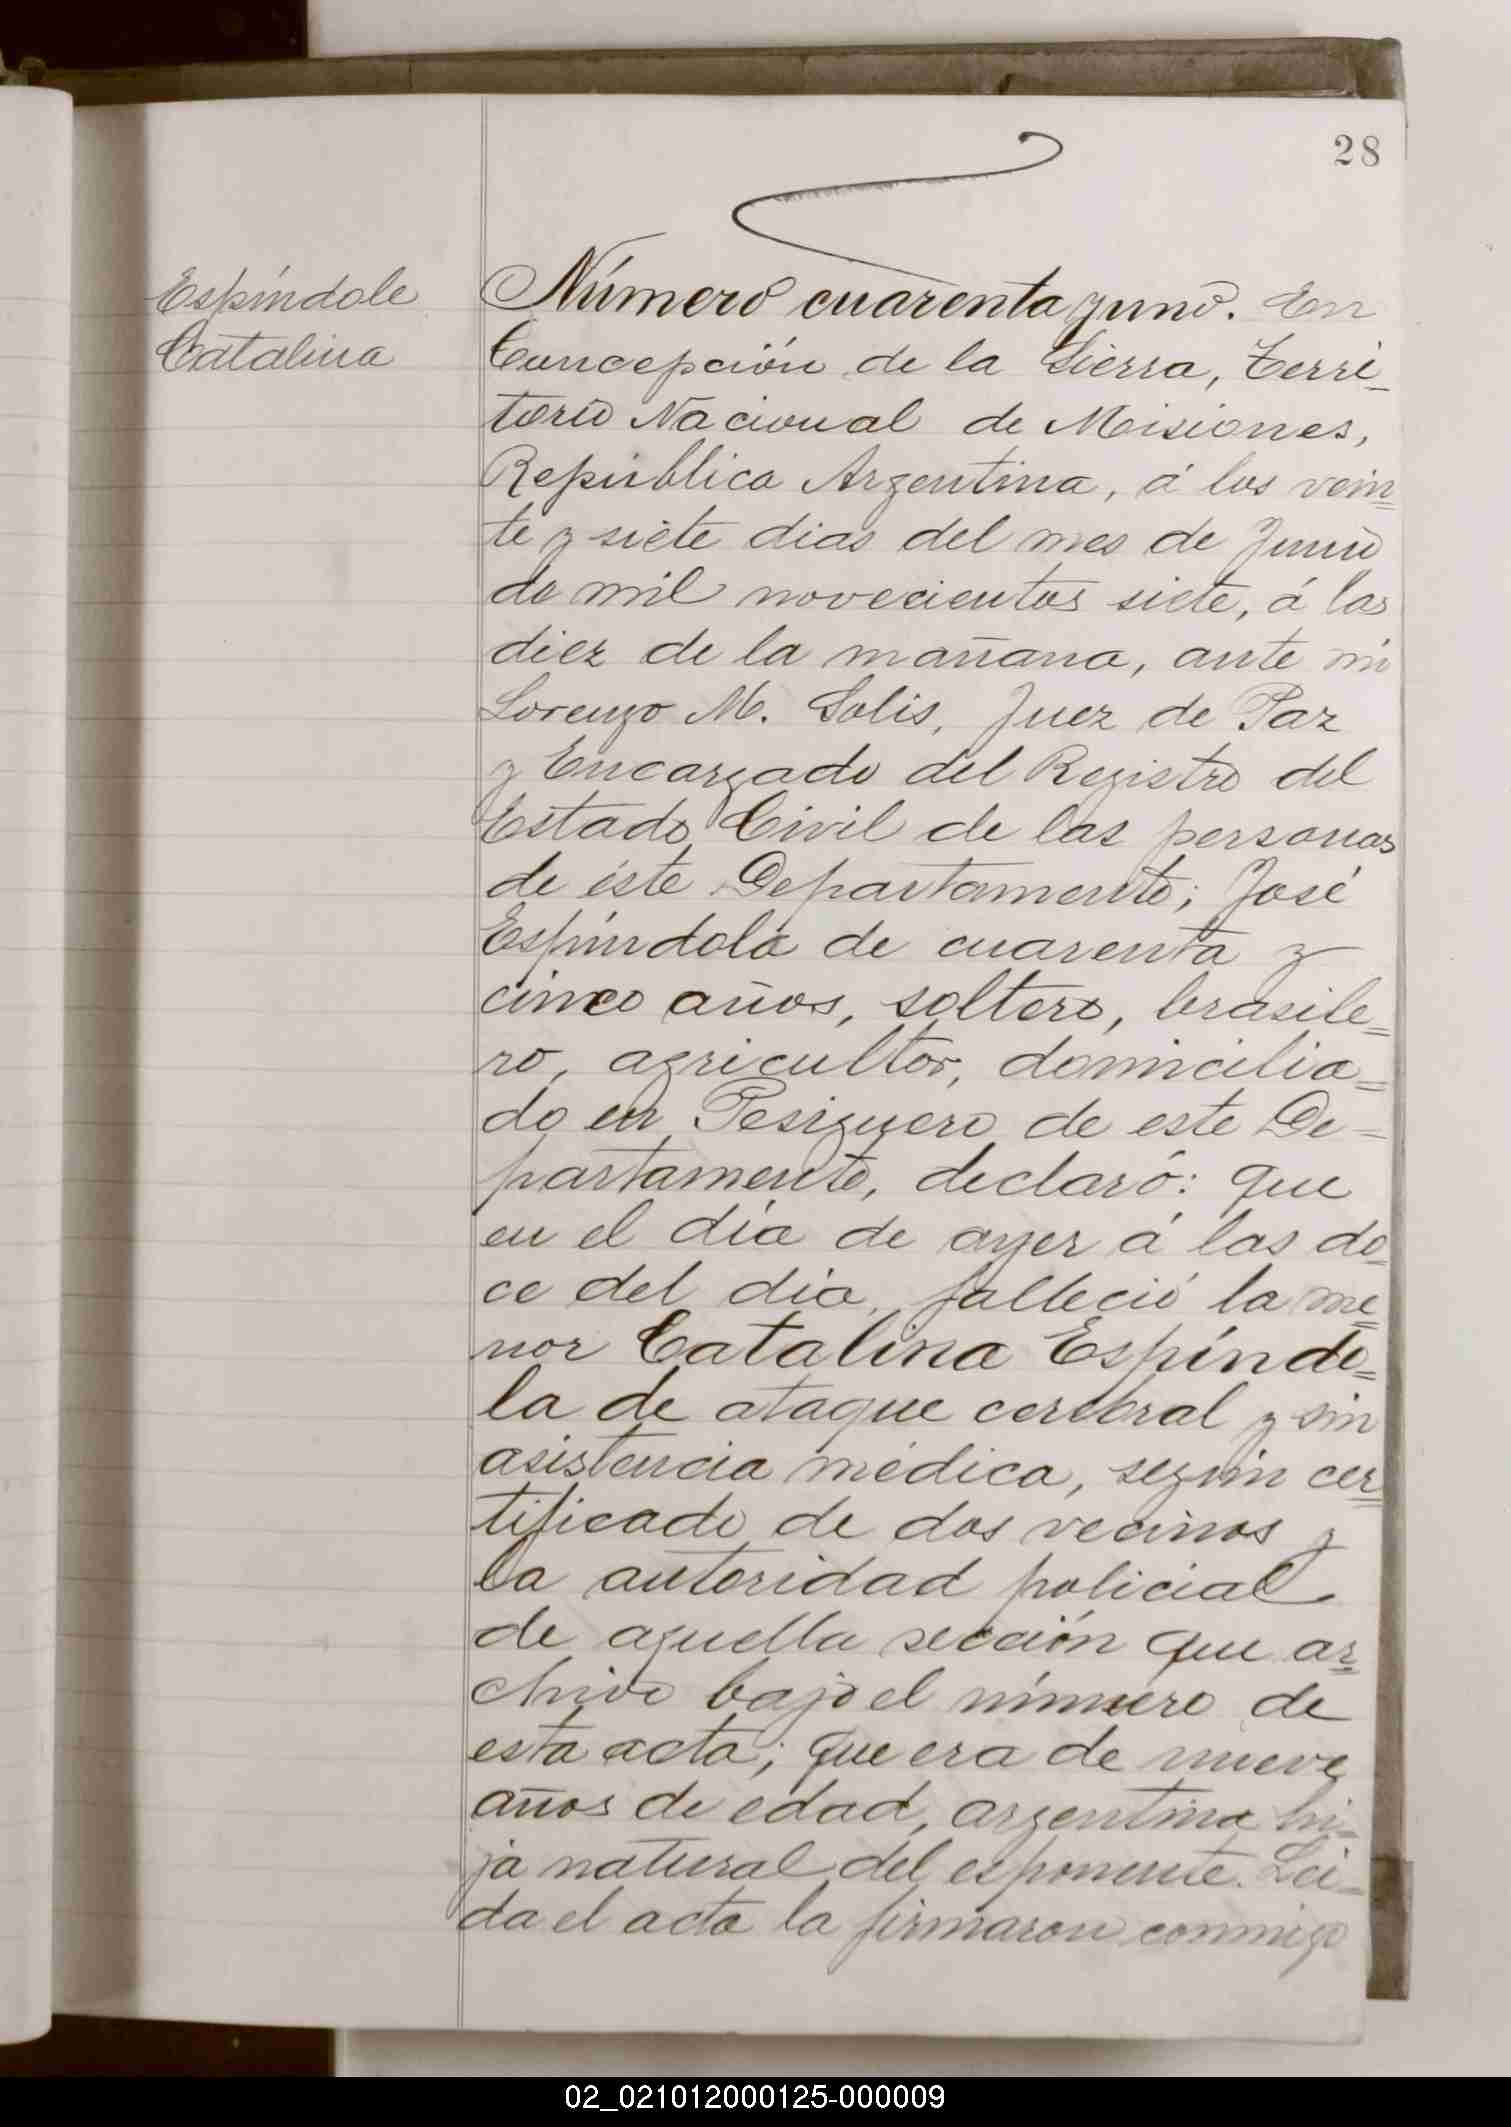 28
Espíndole
Catalina
Número cuarenta y uno. En
Concepción de la Sierra, Terri-
torio Nacional de Misiones,
República Argentina, á los vein=
te y siete dias del mes de Junio
de mil novecientos siete, á las
diez de la mañana, ante mi
Lorenzo M. Solis, Juez de Paz
y Encargado del Registro del
Estado Civil de las personas
de éste Departamento; José
Espíndola de cuarenta y
cinco años, soltero, brasile=
ro, agricultor, domicilia=
do en Pesiguero de este De=
partamento, declaró: que
en el día de ayer á las do=
ce del dia, falleció la me=
nor Catalina Espíndo=
la de ataque cerebral y sin
asistencia médica, según cer=
tificado de dos vecinos y
la autoridad policial
de aquella sección que ar=
chivo bajo el número de
esta acta; que era de nueve
años de edad, argentina hi=
ja natural del esponente. Lei=
da el acta la firmaron conmigo
02_021012000125-000009